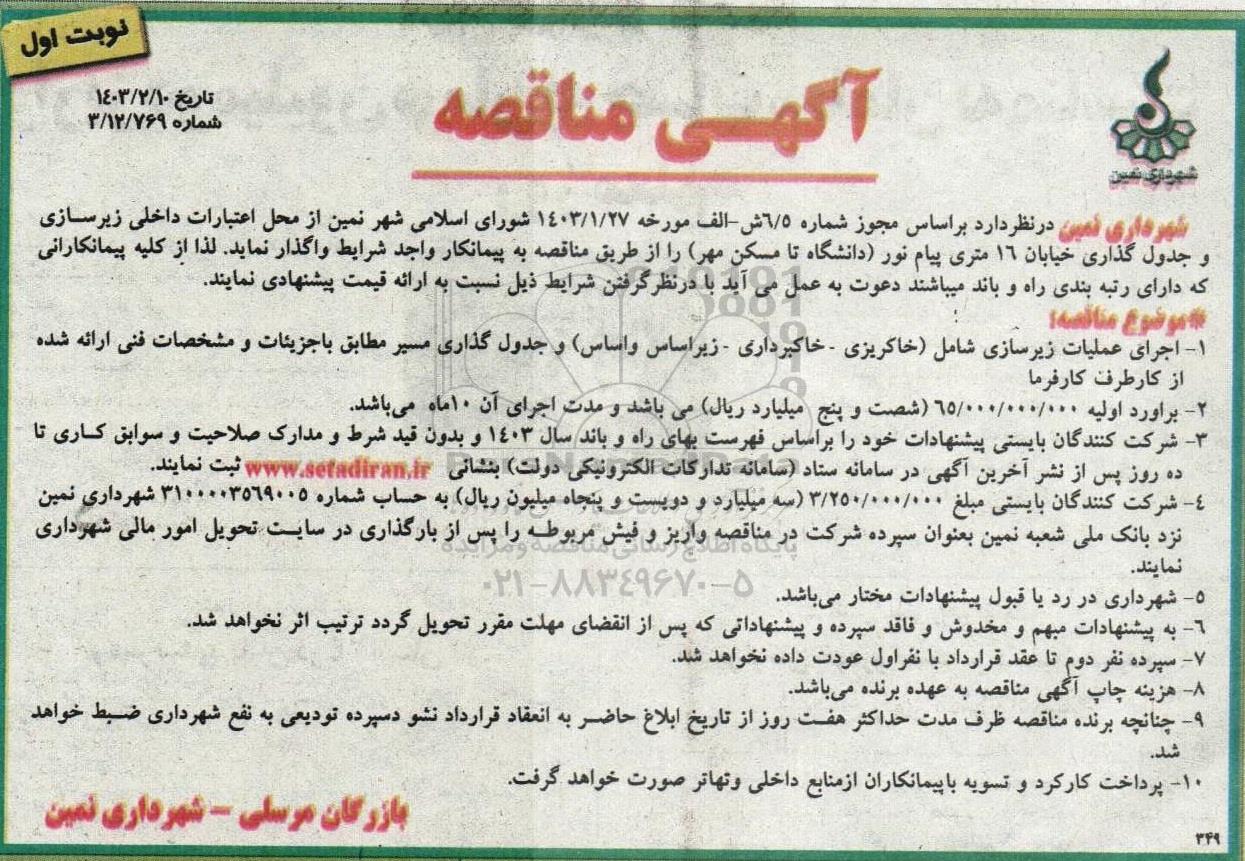 نوبت اول
تاریخ ۱۴۰۳/۲/۱۰
شماره ۳/۱۲/۷۶۹
آگهی مناقصه
شهرداری نمین
شهرداری نمین درنظردارد براساس مجوز شماره ۶/۵ش-الف مورخه ۱۴۰۳/۱/۲۷ شورای اسلامی شهر نمین از محل اعتبارات داخلی زیرسازی
و جدول گذاری خیابان ۱۶ متری پیام نور (دانشگاه تا مسکن مهر) را از طریق مناقصه به پیمانکار واجد شرایط واگذار نماید. لذا از کلیه پیمانکارانی
که دارای رتبه بندی راه و باند میباشند دعوت به عمل می آید با درنظرگرفتن شرایط ذیل نسبت به ارائه قیمت پیشنهادی نمایند.
*موضوع مناقصه:
۱- اجرای عملیات زیرسازی شامل (خاکریزی - خاکبرداری - زیراساس واساس) و جدول گذاری مسیر مطابق باجزئیات و مشخصات فنی ارائه شده
از کارطرف کارفرما
۲- براورد اولیه ۶۵/۰۰۰/۰۰۰/۰۰۰ (شصت و پنج میلیارد ریال) می باشد و مدت اجرای آن ۱۰ماه می‌باشد.
۳- شرکت کنندگان بایستی پیشنهادات خود را براساس فهرست بهای راه و باند سال ۱۴۰۳ و بدون قید شرط و مدارک صلاحیت و سوابق کاری تا
ده روز پس از نشر آخرین آگهی در سامانه ستاد (سامانه تدارکات الکترونیکی دولت) بنشانی www.setadiran.ir ثبت نمایند.
۴- شرکت کنندگان بایستی مبلغ ۳/۲۵۰/۰۰۰/۰۰۰ (سه میلیارد و دویست و پنجاه میلیون ریال) به حساب شماره ۳۱۰۰۰۰۳۵۶۹۰۰۵ شهرداری نمین
نزد بانک ملی شعبه نمین بعنوان سپرده شرکت در مناقصه واریز و فیش مربوطه را پس از بارگذاری در سایت تحویل امور مالی شهرداری
نمایند.
پایگاه اطلاع رسانی مناقصه و مزایده
۰۲۱-۸۸۳۴۹۶۷۰-۵
۵- شهرداری در رد یا قبول پیشنهادات مختار می‌باشد.
۶- به پیشنهادات مبهم و مخدوش و فاقد سپرده و پیشنهاداتی که پس از انقضای مهلت مقرر تحویل گردد ترتیب اثر نخواهد شد.
۷- سپرده نفر دوم تا عقد قرارداد با نفراول عودت داده نخواهد شد.
۸- هزینه چاپ آگهی مناقصه به عهده برنده می‌باشد.
۹- چنانچه برنده مناقصه ظرف مدت حداکثر هفت روز از تاریخ ابلاغ حاضر به انعقاد قرارداد نشو دسپرده تودیعی به نفع شهرداری ضبط خواهد
شد.
۱۰- پرداخت کارکرد و تسویه باپیمانکاران ازمنابع داخلی وتهاتر صورت خواهد گرفت.
بازرگان مرسلی - شهرداری نمین
۳۴۹